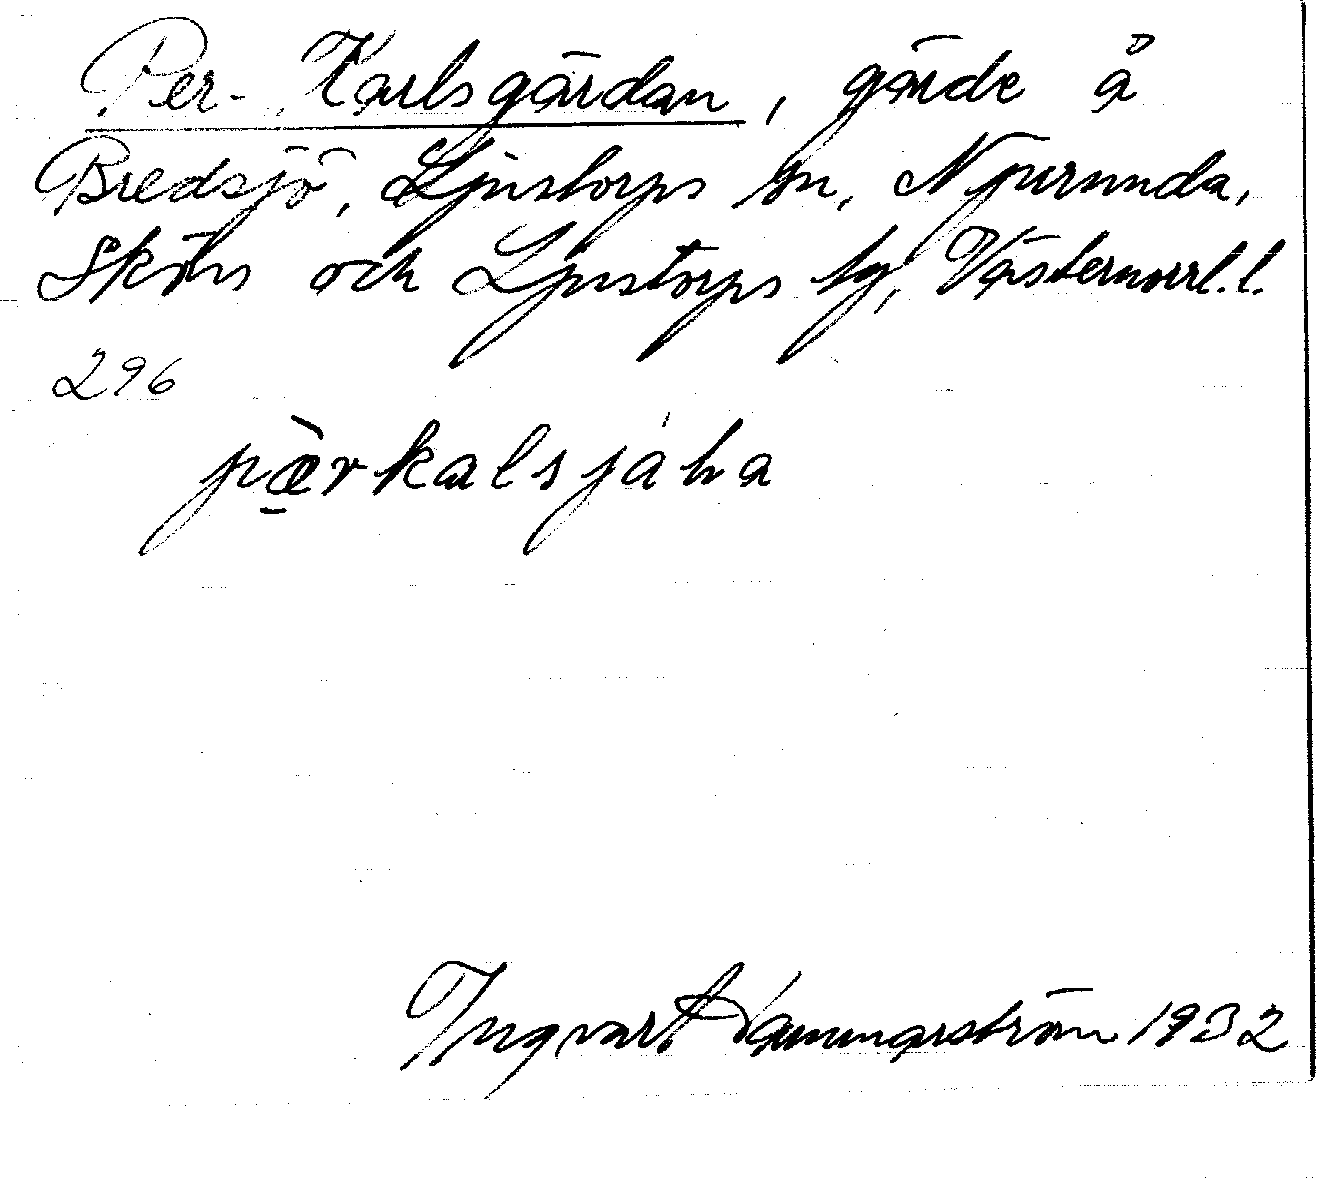 Per-Karlsgärdan, gärde å
Bredsjö, Ljustorps sn, Njurunda,
Sköns och Ljustorps tg, Västernorrl. l.
296
pæ̀rkalsjáła
Ingvart Hammarström 1932